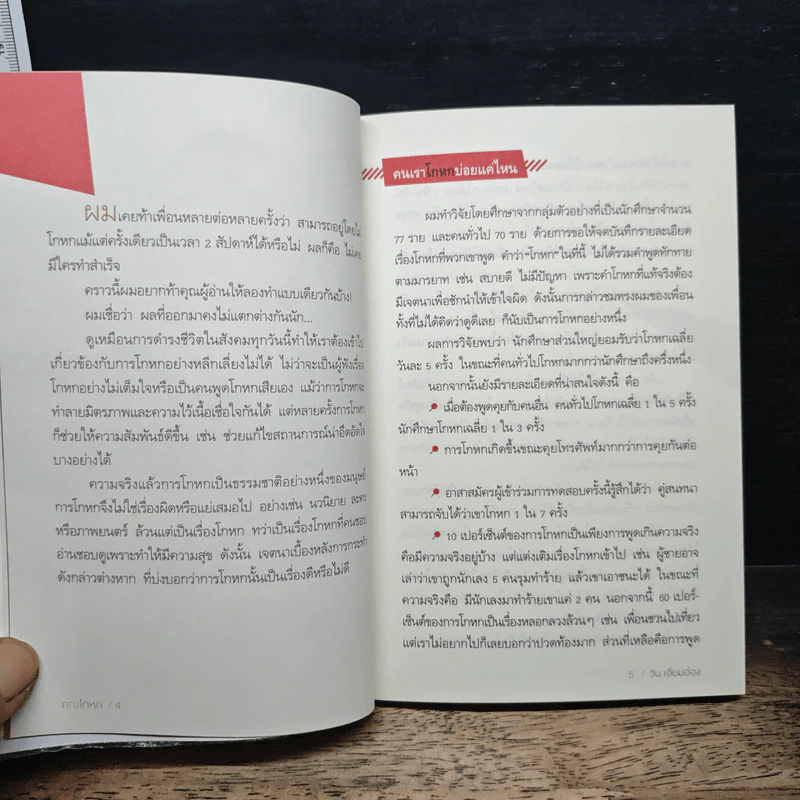 ผมเคยท้าเพื่อนหลายต่อหลายครั้งว่า สามารถอยู่โดยไม่
โกหกแม้แต่ครั้งเดียวเป็นเวลา 2 สัปดาห์ได้หรือไม่ ผลก็คือ ไม่เคย
มีใครทำสำเร็จ
คราวนี้ผมอยากท้าคุณผู้อ่านให้ลองทำแบบเดียวกันบ้าง!
ผมเชื่อว่า ผลที่ออกมาคงไม่แตกต่างกันนัก...
ดูเหมือนการดำรงชีวิตในสังคมทุกวันนี้ทำให้เราต้องเข้าไป
เกี่ยวข้องกับการโกหกอย่างหลีกเลี่ยงไม่ได้ ไม่ว่าจะเป็นผู้ฟังเรื่อง
โกหกอย่างไม่เต็มใจหรือเป็นคนพูดโกหกเสียเอง แม้ว่าการโกหกจะ
ทำลายมิตรภาพและความไว้เนื้อเชื่อใจกันได้ แต่หลายครั้งการโกหก
ก็ช่วยให้ความสัมพันธ์ดีขึ้น เช่น ช่วยแก้ไขสถานการณ์น่าอึดอัดใจ
บางอย่างได้
ความจริงแล้วการโกหกเป็นธรรมชาติอย่างหนึ่งของมนุษย์
การโกหกจึงไม่ใช่เรื่องผิดหรือแย่เสมอไป อย่างเช่น นวนิยาย ละคร
หรือภาพยนตร์ ล้วนแต่เป็นเรื่องโกหก ทว่าเป็นเรื่องโกหกที่คนชอบ
อ่านชอบดูเพราะทำให้มีความสุข ดังนั้น เจตนาเบื้องหลังการกระทำ
ดังกล่าวต่างหาก ที่บ่งบอกว่าการโกหกนั้นเป็นเรื่องดีหรือไม่ดี
คุณโกหก / 4
คนเราโกหกบ่อยแค่ไหน
ผมทำวิจัยโดยศึกษาจากกลุ่มตัวอย่างที่เป็นนักศึกษาจำนวน
77 ราย และคนทั่วไป 70 ราย ด้วยการขอให้จดบันทึกรายละเอียด
เรื่องโกหกที่พวกเขาพูด คำว่า "โกหก" ในที่นี้ ไม่ได้รวมคำพูดทักทาย
ตามมารยาท เช่น สบายดี ไม่มีปัญหา เพราะคำโกหกที่แท้จริงต้อง
มีเจตนาเพื่อชักนำให้เข้าใจผิด ดังนั้นการกล่าวชมทรงผมของเพื่อน
ทั้งที่ไม่ได้คิดว่าดูดีเลย ก็นับเป็นการโกหกอย่างหนึ่ง
ผลการวิจัยพบว่า นักศึกษาส่วนใหญ่ยอมรับว่าโกหกเฉลี่ย
วันละ 5 ครั้ง ในขณะที่คนทั่วไปโกหกมากกว่านักศึกษาถึงครึ่งหนึ่ง
นอกจากนั้นยังมีรายละเอียดที่น่าสนใจดังนี้ คือ
เมื่อต้องพูดคุยกับคนอื่น คนทั่วไปโกหกเฉลี่ย 1 ใน 5 ครั้ง
นักศึกษาโกหกเฉลี่ย 1 ใน 3 ครั้ง
การโกหกเกิดขึ้นขณะคุยโทรศัพท์มากกว่าการคุยกันต่อ
หน้า
อาสาสมัครผู้เข้าร่วมการทดสอบครั้งนี้รู้สึกได้ว่า คู่สนทนา
สามารถจับได้ว่าเขาโกหก 1 ใน 7 ครั้ง
10 เปอร์เซ็นต์ของการโกหกเป็นเพียงการพูดเกินความจริง
คือมีความจริงอยู่บ้าง แต่แต่งเติมเรื่องโกหกเข้าไป เช่น ผู้ชายอาจ
เล่าว่าเขาถูกนักเลง 5 คนรุมทำร้าย แล้วเขาเอาชนะได้ ในขณะที่
ความจริงคือ มีนักเลงมาทำร้ายเขาแค่ 2 คน นอกจากนี้ 60 เปอร์-
เซ็นต์ของการโกหกเป็นเรื่องหลอกลวงล้วนๆ เช่น เพื่อนชวนไปเที่ยว
แต่เราไม่อยากไปก็เลยบอกว่าปวดท้องมาก ส่วนที่เหลือคือการพูด
5 / วิน เฮียมอ่อง